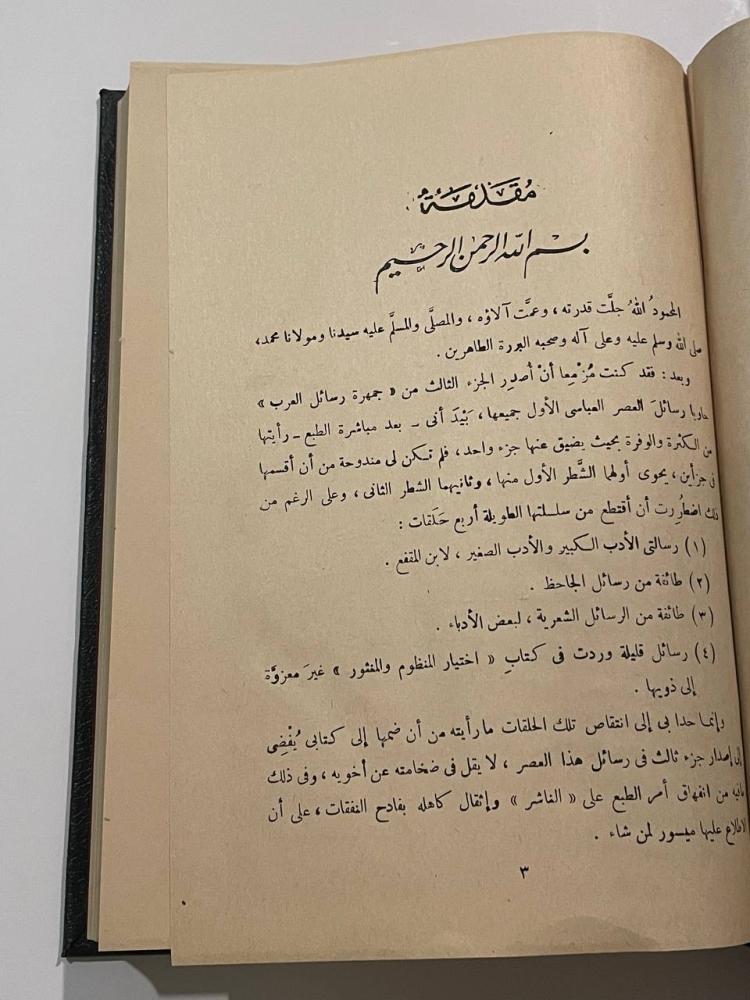 مُقَدِّمَةٌ
بسم الله الرحمن الرحيم
المحمودُ اللهُ جلَّت قدرته ، وعمَّت آلاؤه ، والمصلَّى والمسلَّم عليه سيدنا ومولانا محمد،
صلى الله وسلم عليه وعلى آله وصحبه البررة الطاهرين .
وبعد : فقد كنت مُزْمِعا أنْ أُصدِر الجزء الثالث من « جمهرة رسائل العرب »
حاويا رسائلَ العصر العباسى الأول جميعها ، بَيْدَ أنى – بعد مباشرة الطبع – رأيتها
من الكثرة والوفرة بحيث يضيق عنها جزء واحد ، فلم تكن لى مندوحة من أن أقسمها
فى جزأين ، يحوى أولهما الشَّطر الأول منها ، وثانيهما الشطر الثانى ، وعلى الرغم من
ذلك اضطُرِرت أن أقتطع من سلسلتها الطويلة أربع حَلَقات :
(١) رسالتى الأدب الكبير والأدب الصغير ، لابن المقفع .
(٢) طائفة من رسائل الجاحظ .
(٣) طائفة من الرسائل الشعرية ، لبعض الأدباء .
(٤) رسائل قليلة وردت فى كتابِ « اختيار المنظوم والمنثور » غيرَ معزوَّة
إلى ذويها .
وإنما حدا بى إلى انتقاص تلك الحلقات ما رأيته من أن ضمها إلى كتابى يُفْضِى
إلى إصدار جزء ثالث فى رسائل هذا العصر ، لا يقل فى ضخامته عن أخويه ، وفى ذلك
مافيه من انفهاق أمر الطبع على « الناشر » وإثقال كاهله بفادح النفقات ، على أن
الاطلاع عليها ميسور لمن شاء .
٣